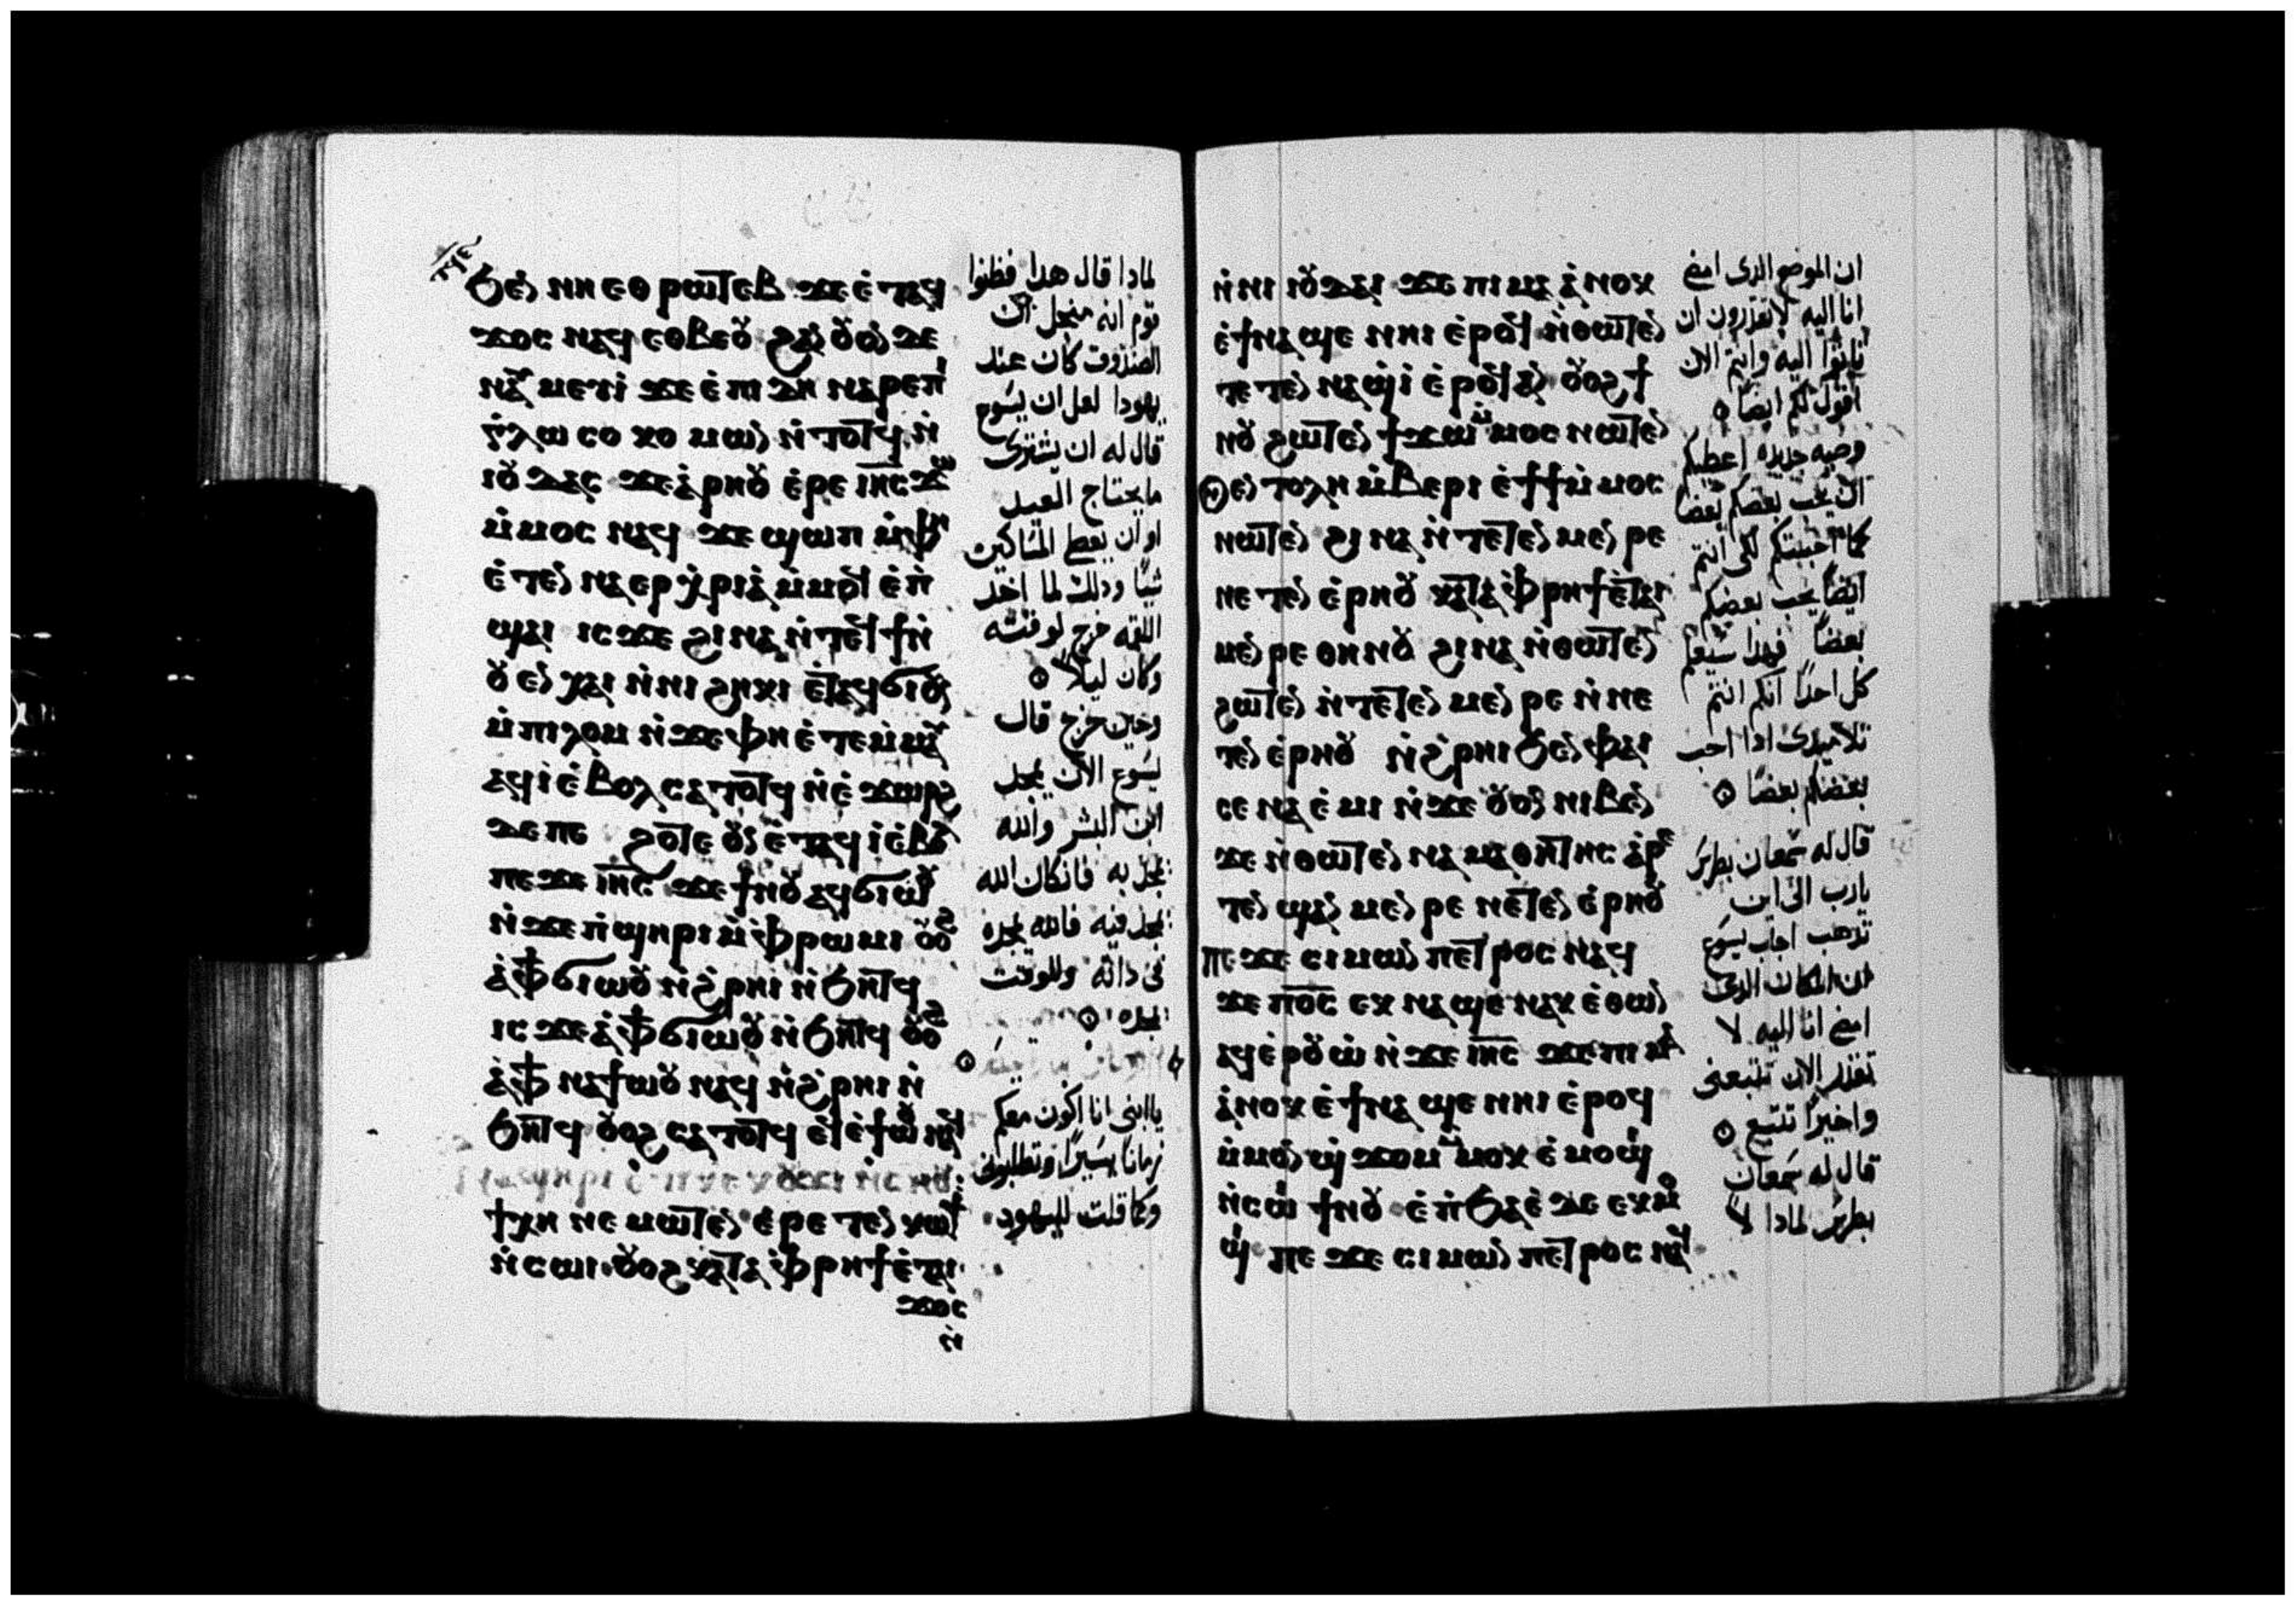 ϧⲉⲛ ⲛⲏ ⲉⲑⲣⲱⲧⲉⲃ ϫⲉ ⲉⲧⲁϥ
ϫⲟⲥ ⲛⲁϥ ⲉⲑⲃⲉⲟⲩ ϩⲁⲛⲟⲩⲟⲛ ⲇⲉ
ⲛⲁⲩⲙⲉⲩⲓ ϫⲉ ⲉⲡⲓⲇⲏ ⲛⲁⲣⲉⲡⲓ
ⲅⲗⲱⲥⲟⲕⲟⲙⲱⲛ ⲛⲧⲟⲧϥ ⲛ
ⲓⲟⲩⲇⲁⲥ ϫⲉ ⲁⲣⲏⲟⲩ ⲉⲣⲉ ⲓⲏⲥ ϫⲱ
ⲙⲙⲟⲥ ⲛⲁϥ ϫⲉ ϣⲱⲡ ⲙⲫⲏ
ⲉⲧⲉⲛⲛⲁⲉⲣⲭⲣⲓⲁ ⲙⲙⲟϥ ⲉⲡ
ϣⲁⲓ ⲓⲥϫⲉ ϩⲓⲛⲁ ⲛⲧⲉϥϯ ⲛ
ⲟⲩⲉⲛⲭⲁⲓ ⲛⲛⲓϩⲏⲕⲓ ⲉⲧⲁϥϭⲓ ⲟⲩⲛ
ⲙⲡⲓⲗⲱⲙ ⲛϫⲉ ⲫⲏ ⲉⲧⲉⲙⲙⲁⲩ
ⲁϥⲓ ⲉⲃⲟⲗ ⲥⲁⲧⲟⲧϥ ⲛⲉ ⲉϫⲱⲣϩ
ⲇⲉ ⲡⲉ ϩⲟⲧⲉ ⲟⲩⲛ ⲉⲧⲁϥⲓ ⲉⲃⲟⲗ
ⲡⲉϫⲉ ⲓⲏⲥ ϫⲉ ϯⲛⲟⲩ ⲁϥϭⲓⲱⲟⲩ
ⲛϫⲉ ⲡϣⲏⲣⲓ ⲙⲫⲣⲱⲙⲓ ⲟⲩⲟϩ
ⲁⲫϯ ϭⲓⲱⲟⲩ ⲛϩⲣⲏⲓ ⲛϧⲏⲧϥ
ⲓⲥϫⲉ ⲁⲫϯ ϭⲓⲱⲟⲩ ⲛϧⲏⲧϥ ⲟⲩⲟϩ
ⲁⲫϯ ⲛⲁϯⲱⲟⲩ ⲛⲁϥ ⲛϩⲣⲏⲓ ⲛ
ϧⲏⲧϥ ⲟⲩⲟϩ ⲥⲁⲧⲟⲧϥ ⲉϥⲉϯⲱⲟⲩ ⲛⲁϥ
ϯⲭⲏ ⲛⲉⲙⲱⲧⲉⲛ ⲉⲣⲉⲧⲉⲛⲕⲱϯ
ⲛⲥⲱⲓ ⲟⲩⲟϩ ⲕⲁⲧⲁ ⲫⲣⲏϯ ⲉⲧⲁⲓ
ϫⲟⲥ
ⲛ
لمادا قال هدا فظنوا
قوم انه من اجل ان
الصندوق كان عند
يهودا لعل ان يسوع
قال له ان يشترى
ما يحتاج العيد
او ان يعطى المساكين
شيئا ودلك لما اخد
اللقمه خرج لوقته
وكان ليلا
وحين خرج قال
يسوع الان يمجد
ابن البشر والله
يمجد به فانكان الله
يمجد فيه فالله يمجده
فى داته وللوقت
يمجده
يا ابنى انا اكون معكم
زمانا يسيرا وتطلبونى
وكما قلت لليهود
ⲛⲛⲓⲓⲟⲩⲇⲁⲓ ϫⲉ ⲡⲓⲙⲁ ⲁⲛⲟⲕ
ⲉϯⲛⲁϣⲉ ⲛⲏⲓ ⲉⲣⲟϥ ⲛⲑⲱⲧⲉⲛ
ⲧⲉⲧⲉⲛⲛⲁϣⲓ ⲉⲣⲟϥ ⲁⲛ ⲟⲩⲟϩ ϯ
ⲛⲟⲩ ϩⲱⲧⲉⲛ ϯϫⲱ ⲙⲙⲟⲥ ⲛⲱⲧⲉⲛ
ⲟⲩⲉⲛⲧⲟⲗⲏ ⲙⲃⲉⲣⲓ ⲉϯϯ ⲙⲙⲟⲥ
ⲛⲱⲧⲉⲛ ϩⲓⲛⲁ ⲛⲧⲉⲧⲉⲛⲙⲉⲛⲣⲉ
ⲛⲉⲧⲉⲛⲉⲣⲏⲟⲩ ⲕⲁⲧⲁ ⲫⲣⲏϯ ⲉⲧⲁⲓ
ⲙⲉⲛⲣⲉ ⲑⲏⲛⲟⲩ ϩⲓⲛⲁ ⲛⲑⲱⲧⲉⲛ
ϩⲱⲧⲉⲛ ⲛⲧⲉⲧⲉⲛⲙⲉⲛⲣⲉ ⲛⲛⲉ
ⲧⲉⲛⲉⲣⲏⲟⲩ ⲛϩⲣⲏⲓ ϧⲉⲛ ⲫⲁⲓ
ⲥⲉⲛⲁⲉⲙⲓ ⲛϫⲉ ⲟⲩⲟⲛ ⲛⲓⲃⲉⲛ
ϫⲉ ⲛⲑⲱⲧⲉⲛ ⲛⲁⲙⲁⲑⲏⲧⲏⲥ ⲁⲣⲉ
ⲧⲉⲛϣⲁⲛⲙⲉⲛⲣⲉ ⲛⲉⲧⲉⲛⲉⲣⲏⲟⲩ
ⲡⲉϫⲉ ⲥⲓⲙⲱⲛ ⲡⲉⲧⲣⲟⲥ ⲛⲁϥ
ϫⲉ ⲡⲟⲥ ⲉⲕⲛⲁϣⲉ ⲛⲁⲕ ⲉⲑⲱⲛ
ⲁϥⲉⲣⲟⲩⲱ ⲛϫⲉ ⲓⲏⲥ ϫⲉ ⲡⲓⲙⲁ
ⲁⲛⲟⲕ ⲉϯⲛⲁϣⲉ ⲛⲏⲓ ⲉⲣⲟϥ
ⲙⲙⲟⲛ ϣϫⲟⲙ ⲙⲙⲟⲕ ⲉⲙⲟϣⲓ
ⲛⲥⲱⲓ ϯⲛⲟⲩ ⲉⲡϧⲁⲉ ⲇⲉ ⲉⲕⲙⲟ
ϣⲓ ⲡⲉϫⲉ ⲥⲓⲙⲱⲛ ⲡⲉⲧⲣⲟⲥ ⲛⲁϥ
ان الموضع الدى امضى
انا اليه لا تقدرون ان
تاتوا اليه وانتم الان
اقول لكم ايضا
وصيه جديده اعطيكم
ان يحب بعضكم بعضا
كما احببتكم لكى انتم
ايضا يحب بعضكم
بعضا فبهدا سيعلم
كل احدا انكم انتم
تلاميدى ادا احب
بعضكم بعضا
قال له سمعان بطرس
يارب الى اين
تدهب اجاب يسوع
ان المكان الدى
امضى انا اليه لا
تقدر الان تتبعنى
واخيرا تتبع
قال له سمعان
بطرس لمادا لا